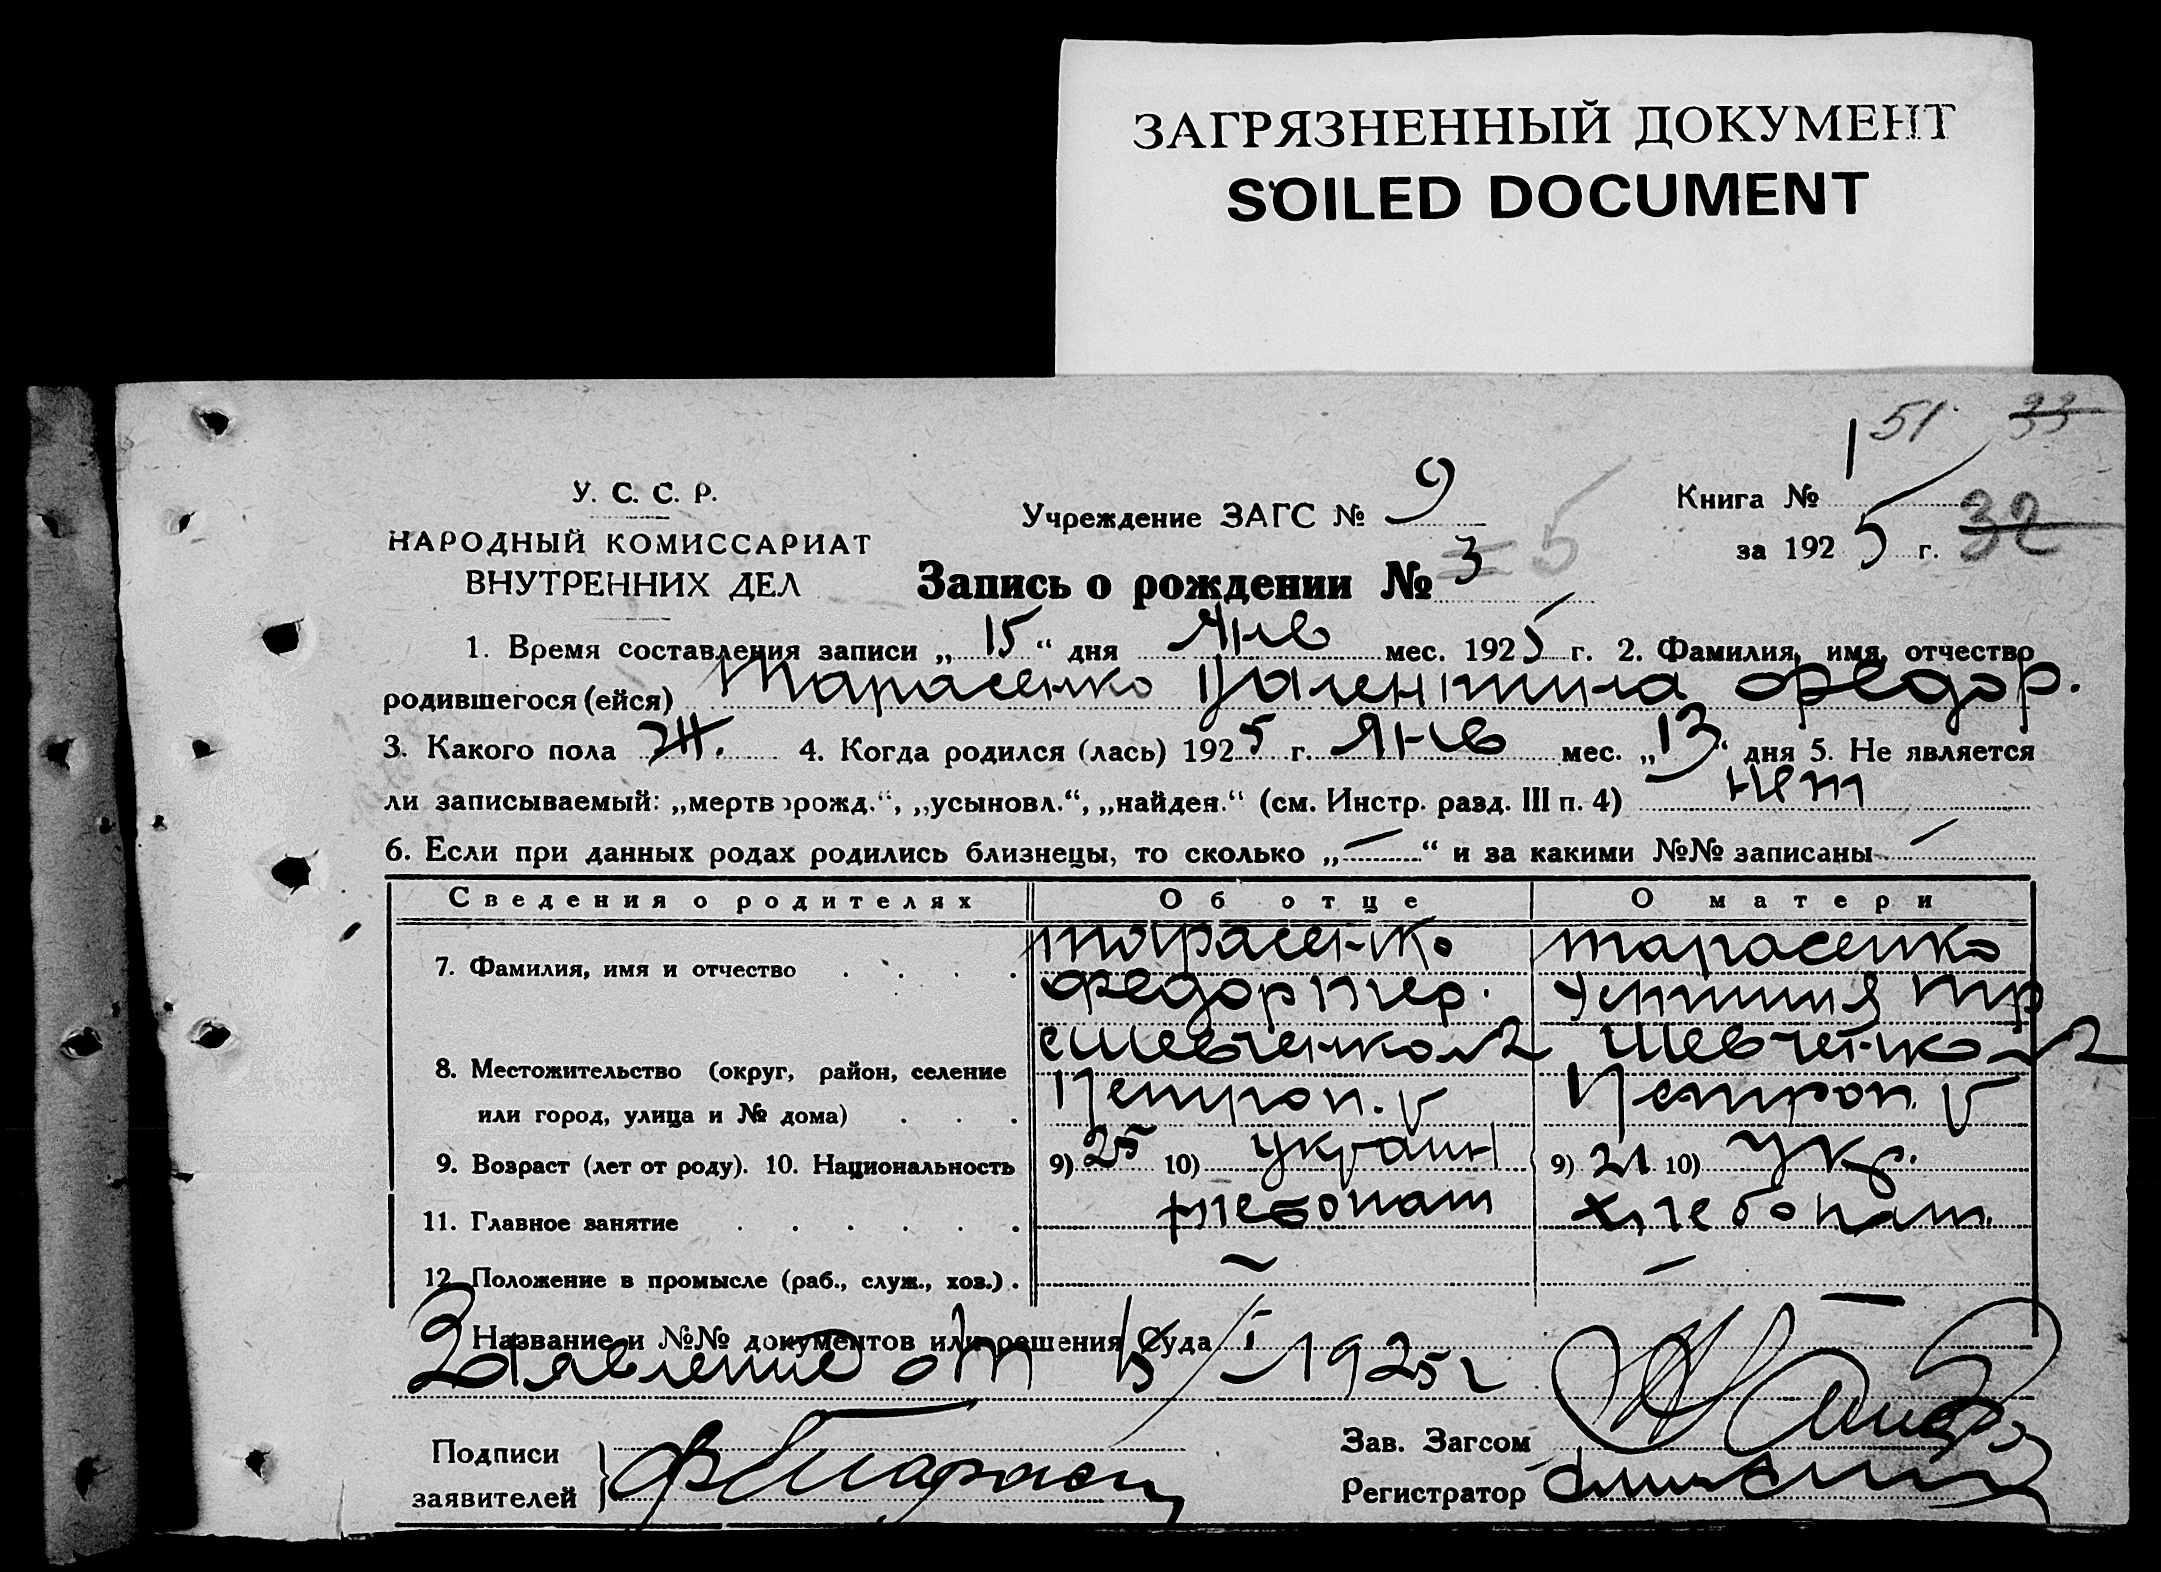 ЗАГРЯЗНЕННЫЙ ДОКУМЕНТ
SOILED DOCUMENT
51 33
У. С. С. Р.
НАРОДНЫЙ КОМИССАРИАТ
ВНУТРЕННИХ ДЕЛ
Учреждение ЗАГС № 9
Книга № 1
за 1925 г. 32
Запись о рождении № 3 5
1. Время составления записи „15“ дня Янв мес. 1925 г. 2. Фамилия, имя, отчество
родившегося (ейся) Тарасенко Валентина Федор.
3. Какого пола Ж. 4. Когда родился (лась) 1925 г. Янв мес. „13“ дня 5. Не является
ли записываемый: „мертворожд.“, „усыновл.“, „найден.“ (см. Инстр. разд. III п. 4) нет
6. Если при данных родах родились близнецы, то сколько „—“ и за какими №№ записаны —
Сведения о родителях Об отце О матери
7. Фамилия, имя и отчество Тарасенко Тарасенко
Федор
8. Местожительство (округ, район, селение Шевченко 2
или город, улица и № дома) Петроп. Петроп.
9. Возраст (лет от роду). 10. Национальность 9) 25 10) украин 9) 21 10) Укр.
11. Главное занятие хлебопаш хлебопаш.
12. Положение в промысле (раб., служ., хоз.) — —
Название и №№ документов или решения Суда —
Заявление от 15/I 1925 г
Подписи
заявителей
Зав. Загсом
Регистратор